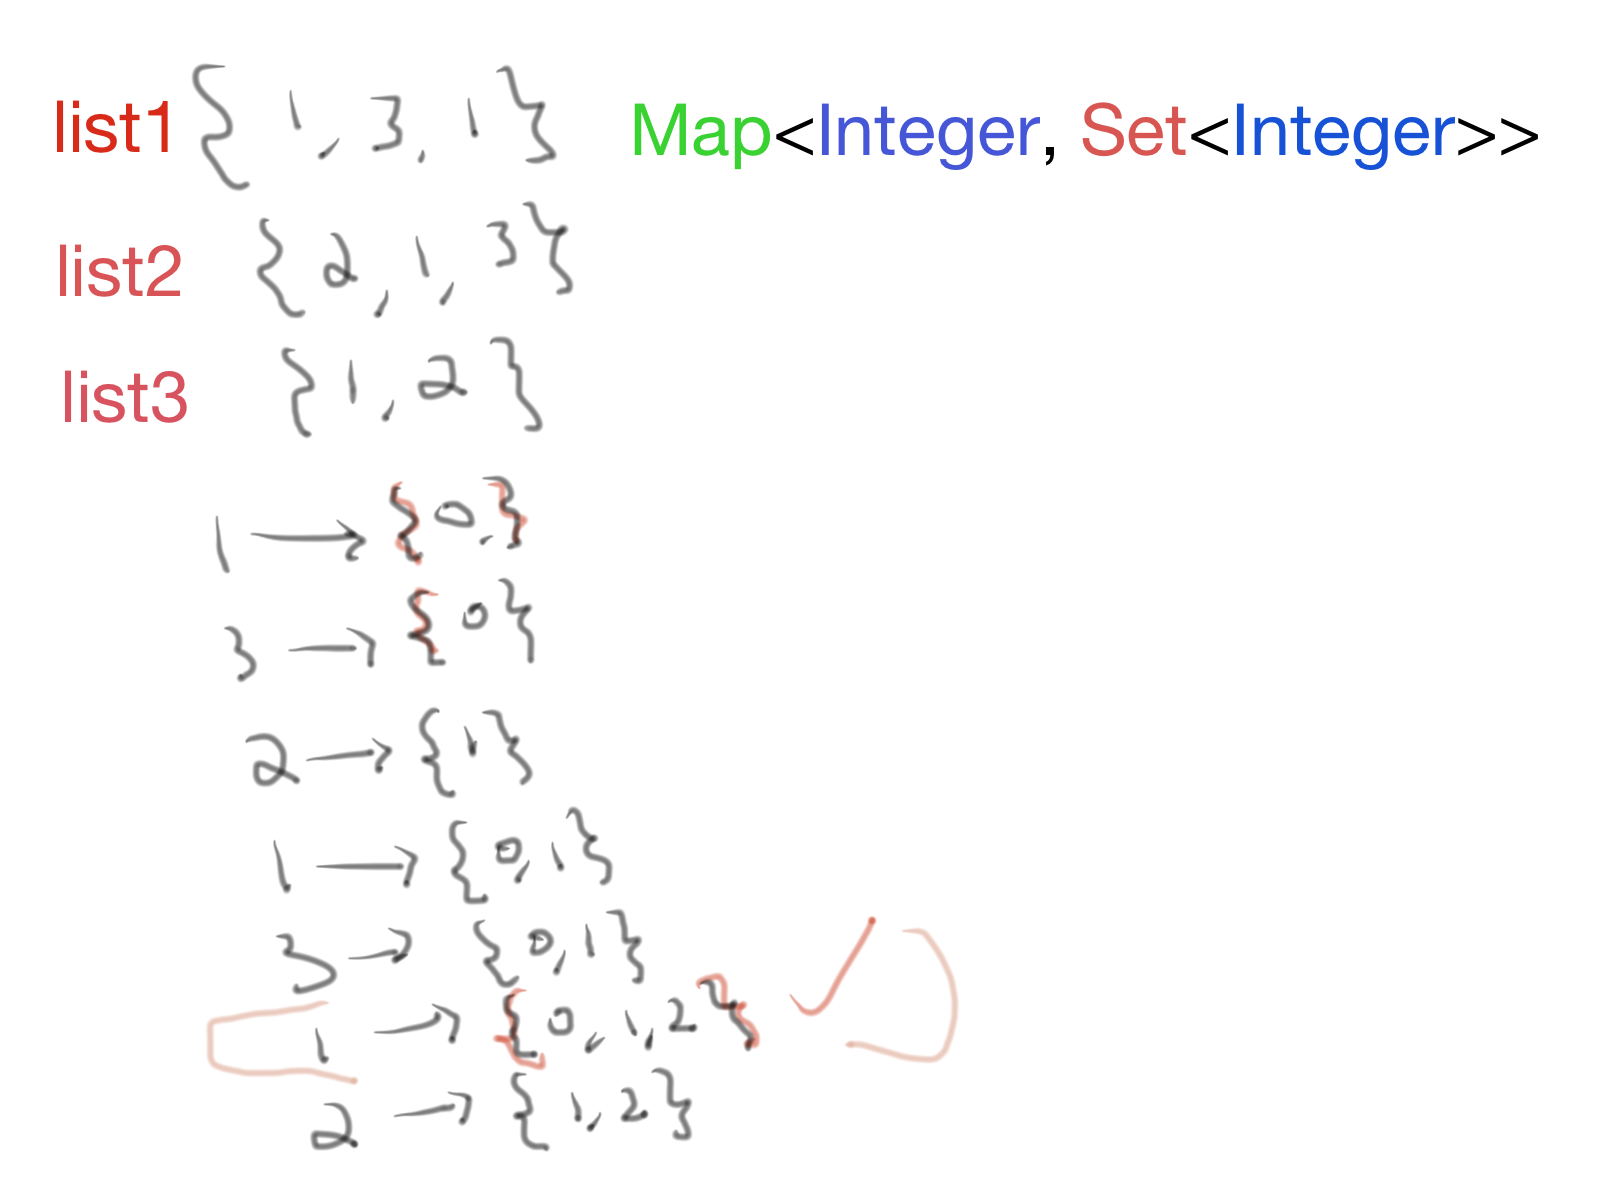 list1 { 1, 3, 1 } Map<Integer, Set<Integer>>
list2 { 2, 1, 3 }
list3 { 1, 2 }
1 → { 0, }
3 → { 0 }
2 → { 1 }
1 → { 0, 1 }
3 → { 0, 1 }
1 → { 0, 1, 2 } ✓
2 → { 1, 2 }